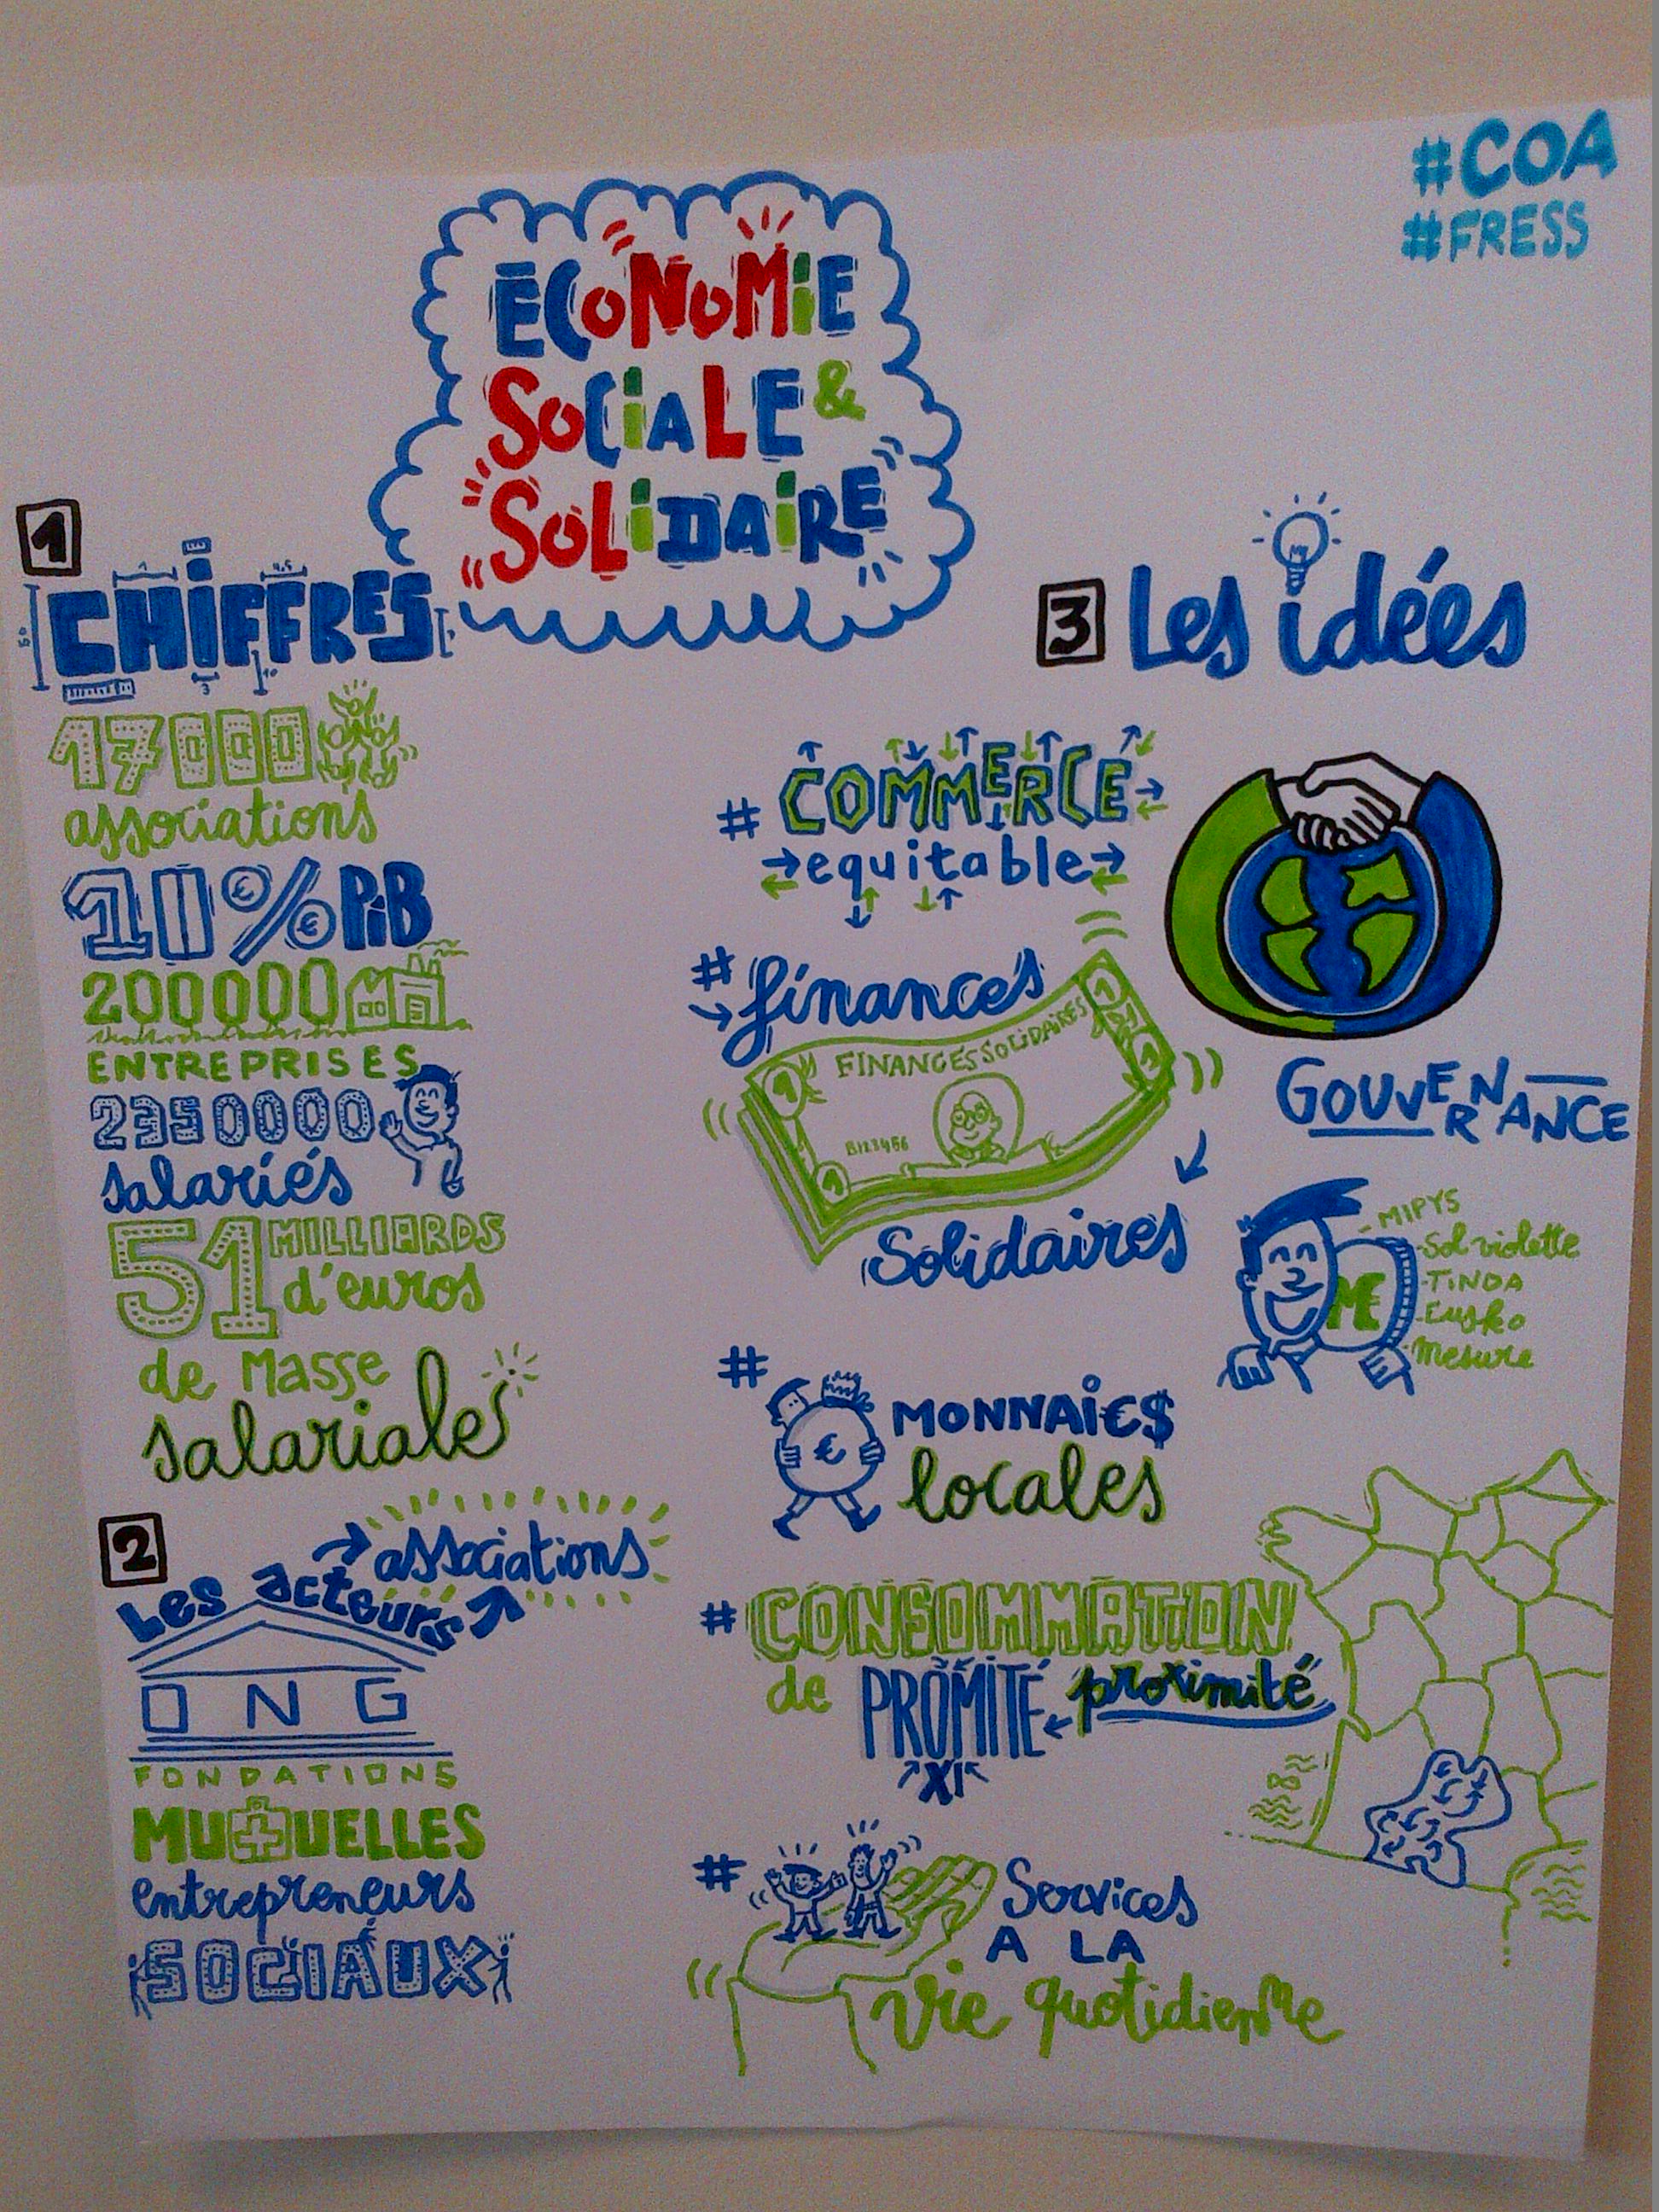 #COA
#FRESS
ÉCONOMIE
SOCIALE &
SOLIDAIRE
1
CHIFFRES
17000
associations
10% PIB
200000
ENTREPRISES
2350000
salariés
51 MILLIARDS
d'euros
de Masse
salariale
2
Les acteurs
associations
ONG
FONDATIONS
MUTUELLES
entrepreneurs
SOCIAUX
3 Les idées
# COMMERCE
equitable
# finances
FINANCES SOLIDAIRES
B123456
Solidaires
GOUVERNANCE
MIPYS
Sol violette
TINDA
Eusko
Mesure
M€
# MONNAI€$
locales
€
# CONSOMMATION
de PROMITÉ proximité
XI
# Services
A LA
vie quotidienne